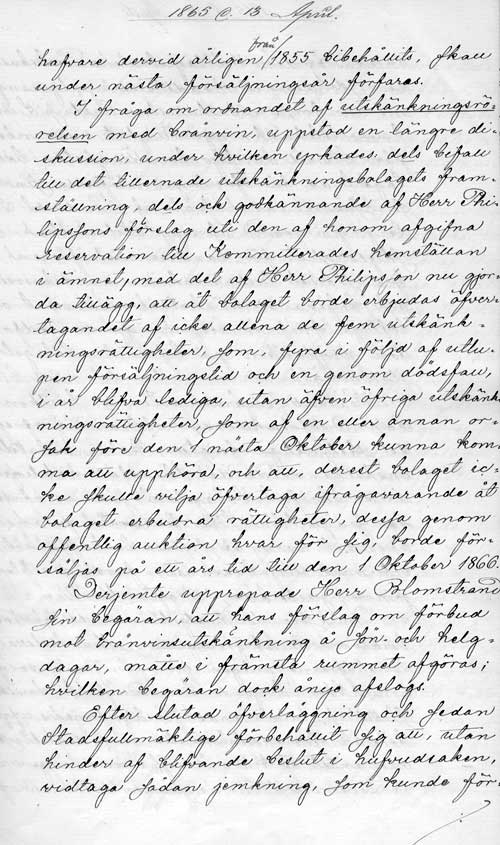 1865 d. 13 April.
från
hafvare dervid årligen 1855 bibehållits, skall
under nästa försäljningsår förfaras.
I fråga om ordnandet af utskänkningsrö-
relsen med bränvin, uppstod en längre di-
skussion, under hvilken yrkades, dels bifall
till det tillernade utskänkningsbolagets fram-
ställning, dels ock godkännande af Herr Phi-
lipssons förslag uti den af honom afgifna
reservation till Kommitterades hemställan
i ämnet, med det af Herr Philipson nu gjor-
da tillägg, att åt bolaget borde erbjudas öfver-
tagandet af icke allena de fem utskänk-
ningsrättigheter, som, fyra i följd af utlu-
pen försäljningstid och en genom dödsfall,
i år blifva lediga, utan äfven öfriga utskänk-
ningsrättigheter, som af en eller annan or-
sak före den 1 nästa Oktober kunna kom-
ma att upphöra, och att, derest bolaget ic-
ke skulle vilja öfvertaga ifrågavarande åt
bolaget erbudna rättigheter, dessa genom
offentlig auktion hvar för sig, borde för-
säljas på ett års tid till den 1 Oktober 1866.
Derjemte upprepade Herr Blomstrand
sin begäran, att hans förslag om förbud
mot bränvinsutskänkning å sön- och helg-
dagar, måtte i främsta rummet afgöras;
hvilken begäran dock ånyo afslogs.
Efter slutad öfverläggning och sedan
Stadsfullmäktige förbehållit sig att, utan
hinder af blifvande beslut i hufvudsaken,
vidtaga sådan jemkning, som kunde för-